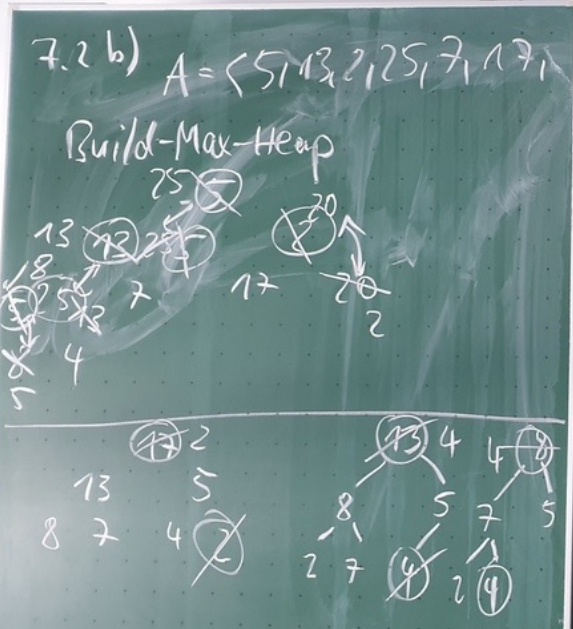 7.2 b) A = ⟨5, 13, 2, 25, 7, 17,
Build-Max-Heap
25 5
20
13 13 25 5 2
8
5 25 13 7 17 20
2
8 4
5
17 2 13 4 4 8
13 5 8 5 7 5
8 7 4 2 2 7 4 2 4